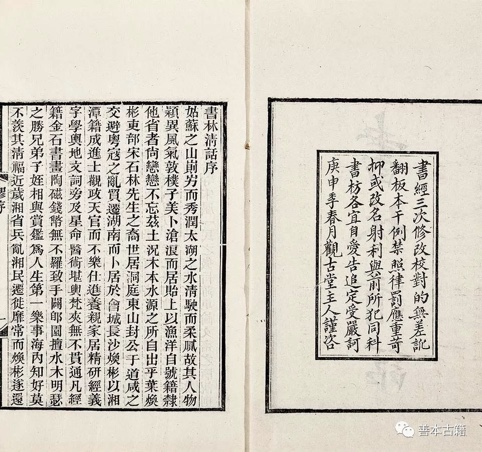 書經三次修改校對的無差訛
翻板本干例禁照律罰應重苛
抑或改名射利與前所犯同科
書坊各宜自愛告追定受嚴訶
庚申季春月觀古堂主人謹咨
書林清話序
姑蘇之山則岃而秀潤太湖之水清駛而柔膩故其人物
穎異風氣敦樸子美卜滄浪而居貽上以漁洋自號籍隸
他省者尚戀戀不忘茲土況木本水源之所自出乎葉煥
彬吏部宋石林先生之裔世居洞庭東山封公于道咸之
交避粵寇之亂買遷湖南而卜居於會城長沙煥彬以湘
潭籍成進士觀政天官而不樂仕進養親家居精研經義
字學輿地文詞旁及星命醫術堪輿梵夾無不貫通凡經
籍金石書畫陶磁錢幣無不羅致手闢郋園擅水木明瑟
之勝兄弟子姪相與賞鑑爲人生第一樂事海內知好莫
不羨其清福近歲湘省兵亂湘民遷徙靡常而煥彬遂還
善本古籍